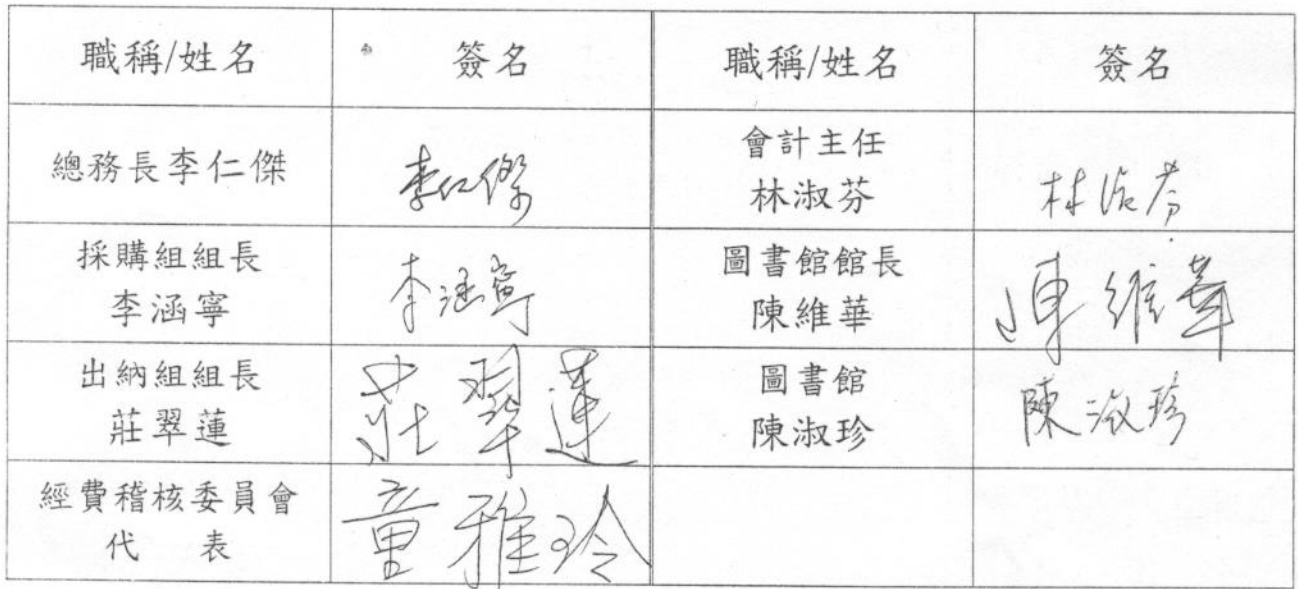 職稱/姓名 簽名 職稱/姓名 簽名
總務長李仁傑 李仁傑 會計主任
林淑芬 林淑芬
採購組組長
李涵寧 李涵寧 圖書館館長
陳維華 陳維華
出納組組長
莊翠蓮 莊翠蓮 圖書館
陳淑珍 陳淑珍
經費稽核委員會
代 表 童雅玲